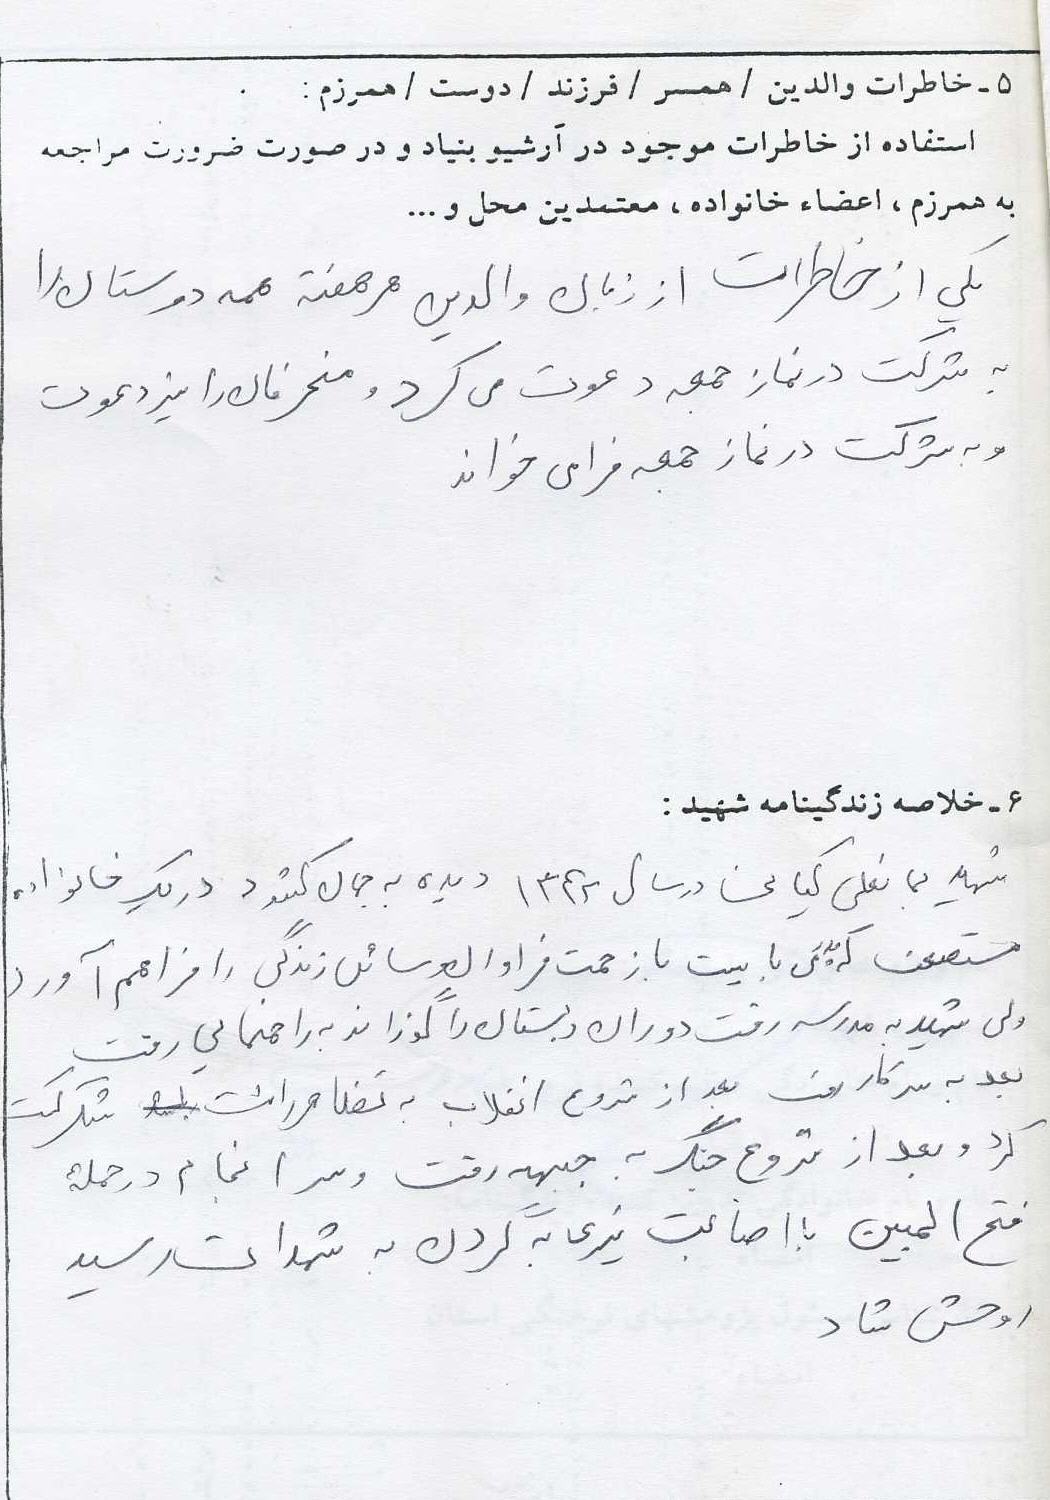 ۵ـ خاطرات والدین / همسر / فرزند / دوست / همرزم :
استفاده از خاطرات موجود در آرشیو بنیاد و در صورت ضرورت مراجعه
به همرزم ، اعضاء خانواده ، معتمدین محل و ...
یکی از خاطرات از زبان والدین هر هفته همه دوستان را
به شرکت در نماز جمعه دعوت می کرد و منحرفان را نیز دعوت
و به شرکت در نماز جمعه فرامی خواند
۶ـ خلاصه زندگینامه شهید :
شهید در سال دیده به جهان گشود در یک خانواده
مستضعف که با زحمت فراوان وسائل زندگی را فراهم آورد
ولی شهید به مدرسه رفت دوران دبستان را گوزاند به راهنمایی رفت
بعد به سرکار رفت بعد از شروع انقلاب به تضاهرات شرکت
کرد و بعد از شروع جنگ به جبهه رفت و سرانجام در حمله
فتح المبین با اصابت تیر به گردن به شهادت رسید
روحش شاد